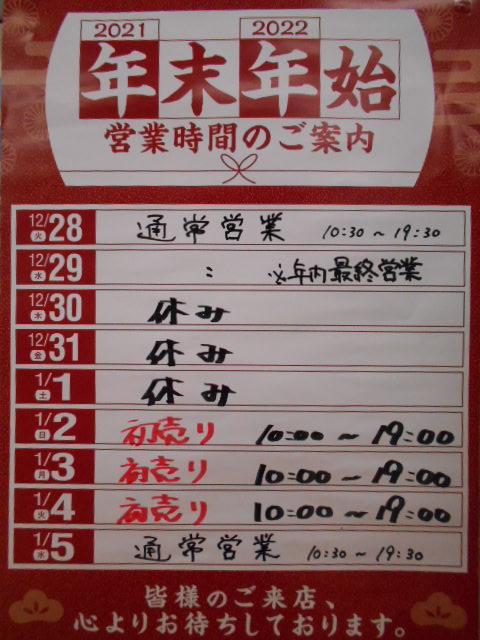 2021 2022
年末年始
営業時間のご案内
12/28 火 通常営業 10:30～19:30
12/29 水 : ※年内最終営業
12/30 木 休み
12/31 金 休み
1/1 土 休み
1/2 日 初売り 10:00～19:00
1/3 月 初売り 10:00～19:00
1/4 火 初売り 10:00～19:00
1/5 水 通常営業 10:30～19:30
皆様のご来店、
心よりお待ちしております。